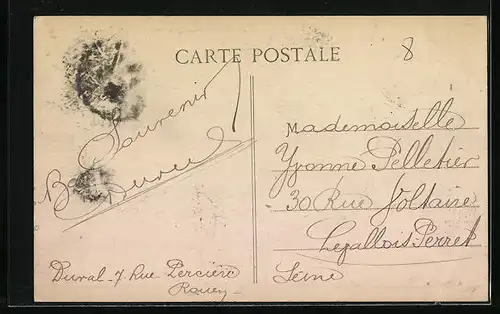 CARTE POSTALE
8
Bon Souvenir
Duval
Mademoiselle
Yvonne Pelletier
30 Rue Voltaire
Levallois-Perret
Seine
Duval - 7 Rue Percière
Rouen -